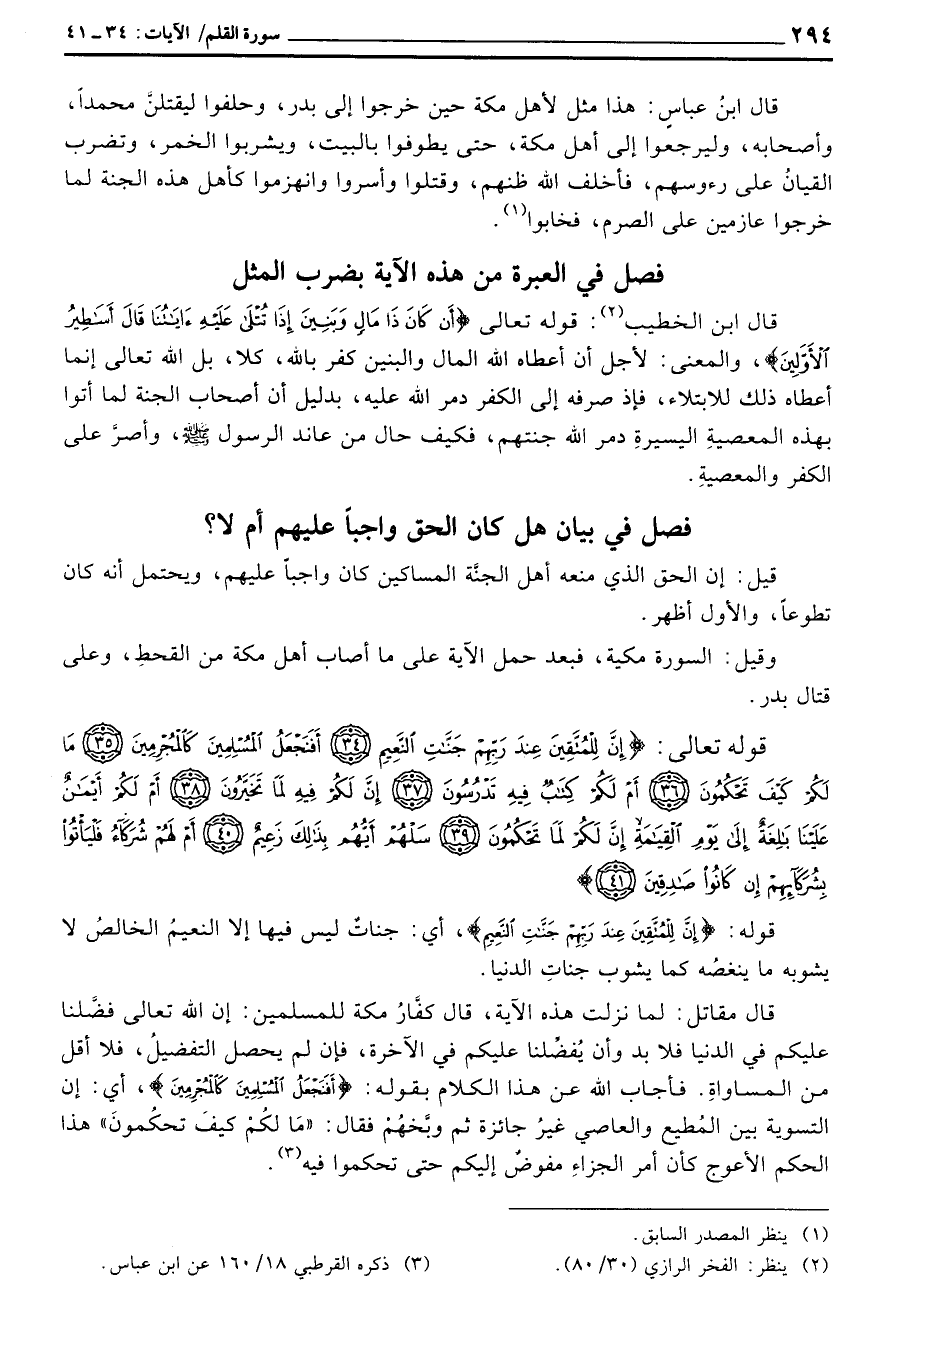 ٢٩٤ سورة القلم/ الآيات: ٣٤ ـ ٤١
قال ابنُ عباسٍ: هذا مثل لأهل مكة حين خرجوا إلى بدر، وحلفوا ليقتلنَّ محمداً،
وأصحابه، وليرجعوا إلى أهل مكة، حتى يطوفوا بالبيت، ويشربوا الخمر، وتضرب
القيانُ على رءوسهم، فأخلف الله ظنهم، وقتلوا وأسروا وانهزموا كأهل هذه الجنة لما
خرجوا عازمين على الصرم، فخابوا(١).
فصل في العبرة من هذه الآية بضرب المثل
قال ابن الخطيب(٢): قوله تعالى ﴿أَن كَانَ ذَا مَالٍ وَبَنِينَ إِذَا تُتْلَىٰ عَلَيْهِ ءَايَٰتُنَا قَالَ أَسَٰطِيرُ
ٱلْأَوَّلِينَ﴾، والمعنى: لأجل أن أعطاه الله المال والبنين كفر بالله، كلا، بل الله تعالى إنما
أعطاه ذلك للابتلاء، فإذ صرفه إلى الكفر دمر الله عليه، بدليل أن أصحاب الجنة لما أتوا
بهذه المعصيةِ اليسيرةِ دمر الله جنتهم، فكيف حال من عاند الرسول ﷺ، وأصرَّ على
الكفر والمعصيةِ.
فصل في بيان هل كان الحق واجباً عليهم أم لا؟
قيل: إن الحق الذي منعه أهل الجنَّة المساكين كان واجباً عليهم، ويحتمل أنه كان
تطوعاً، والأول أظهر.
وقيل: السورة مكية، فبعد حمل الآية على ما أصاب أهل مكة من القحطِ، وعلى
قتال بدر.
قوله تعالى: ﴿إِنَّ لِلْمُتَّقِينَ عِندَ رَبِّهِمْ جَنَّٰتِ ٱلنَّعِيمِ ٣٤ أَفَنَجْعَلُ ٱلْمُسْلِمِينَ كَٱلْمُجْرِمِينَ ٣٥ مَا
لَكُمْ كَيْفَ تَحْكُمُونَ ٣٦ أَمْ لَكُمْ كِتَٰبٌ فِيهِ تَدْرُسُونَ ٣٧ إِنَّ لَكُمْ فِيهِ لَمَا تَخَيَّرُونَ ٣٨ أَمْ لَكُمْ أَيْمَٰنٌ
عَلَيْنَا بَٰلِغَةٌ إِلَىٰ يَوْمِ ٱلْقِيَٰمَةِ ۙ إِنَّ لَكُمْ لَمَا تَحْكُمُونَ ٣٩ سَلْهُمْ أَيُّهُم بِذَٰلِكَ زَعِيمٌ ٤٠ أَمْ لَهُمْ شُرَكَآءُ فَلْيَأْتُوا۟
بِشُرَكَآئِهِمْ إِن كَانُوا۟ صَٰدِقِينَ ٤١﴾
قوله: ﴿إِنَّ لِلْمُتَّقِينَ عِندَ رَبِّهِمْ جَنَّٰتِ ٱلنَّعِيمِ﴾، أي: جناتٌ ليس فيها إلا النعيمُ الخالصُ لا
يشوبه ما ينغصُه كما يشوب جناتِ الدنيا.
قال مقاتل: لما نزلت هذه الآية، قال كفَّارُ مكة للمسلمين: إن الله تعالى فضَّلنا
عليكم في الدنيا فلا بد وأن يُفضِّلنا عليكم في الآخرة، فإن لم يحصل التفضيلُ، فلا أقل
من المساواةِ. فأجاب الله عن هذا الكلام بقوله: ﴿أَفَنَجْعَلُ ٱلْمُسْلِمِينَ كَٱلْمُجْرِمِينَ﴾، أي: إن
التسوية بين المُطيع والعاصي غيرُ جائزة ثم وبَّخهُمْ فقال: «مَا لكُمْ كيفَ تحكُمونَ» هذا
الحكم الأعوج كأن أمر الجزاءِ مفوضٌ إليكم حتى تحكموا فيه(٣).
(١) ينظر المصدر السابق.
(٢) ينظر: الفخر الرازي (٣٠/ ٨٠). (٣) ذكره القرطبي ١٨/ ١٦٠ عن ابن عباس.